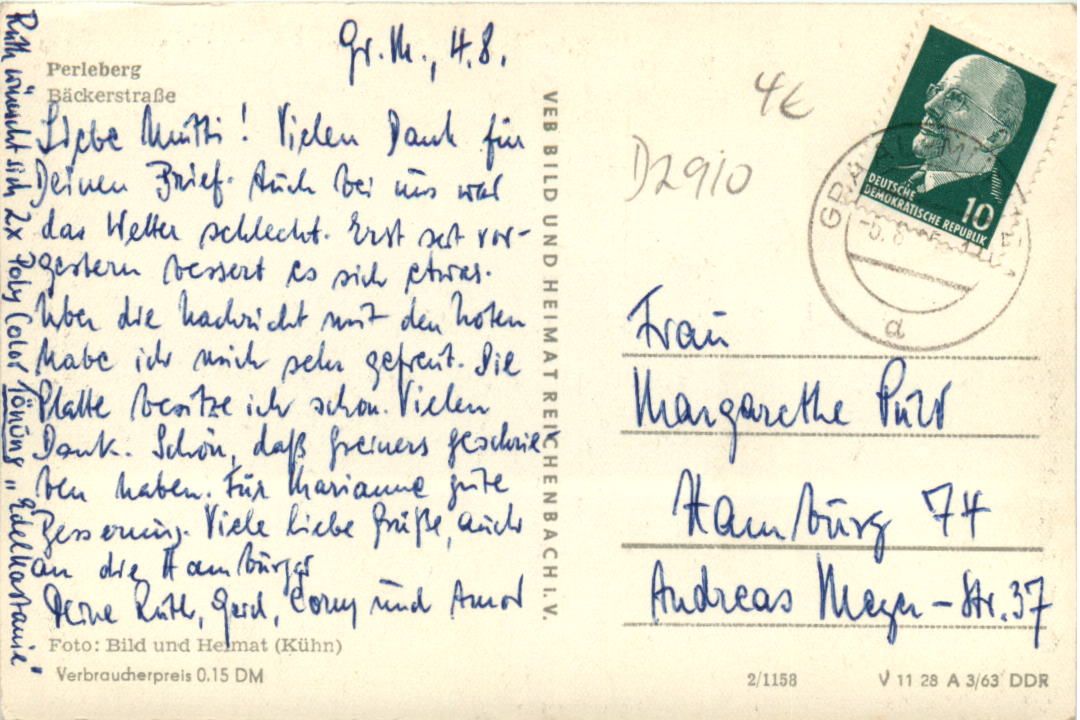 Gr. M., 4.8.
Perleberg
Bäckerstraße
Liebe Mutti! Vielen Dank für
Deinen Brief. Auch bei uns war
das Wetter schlecht. Erst seit vor-
gestern bessert es sich etwas.
Über die Nachricht mit den Noten
habe ich mich sehr gefreut. Die
Platte besitze ich schon. Vielen
Dank. Schön, daß Greiners geschrie-
ben haben. Für Marianne gute
Besserung. Viele liebe Grüße, auch
an die Hamburger
Deine Ruth, Gerd, Corny und
Ruth wünscht sich 2x Poly Color Tönung „Edelkastanie"
Foto: Bild und Heimat (Kühn)
Verbraucherpreis 0.15 DM
VEB BILD UND HEIMAT REICHENBACH I. V.
4€
D2910
DEUTSCHE
DEMOKRATISCHE REPUBLIK
10
a
Frau
Margarethe
Hamburg 74
Andreas Meyer-Str. 37
2/1158
V 11 28 A 3/63 DDR